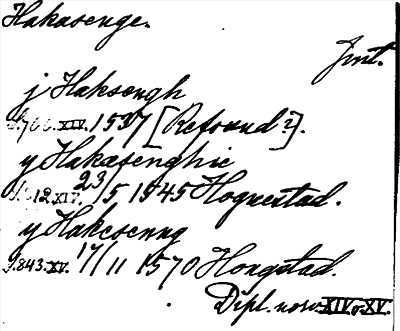 Hakasenge.
Jmt.
j Haksengh
S.766.XIV. 1537 [Refsund?].
y Hakasenghie
S.812.XIV. 23/5 1545 Hogrestad.
y Haksenng
S.843.XV. 17/11 1570 Hougstad.
Dipl. norv. XIV o. XV.